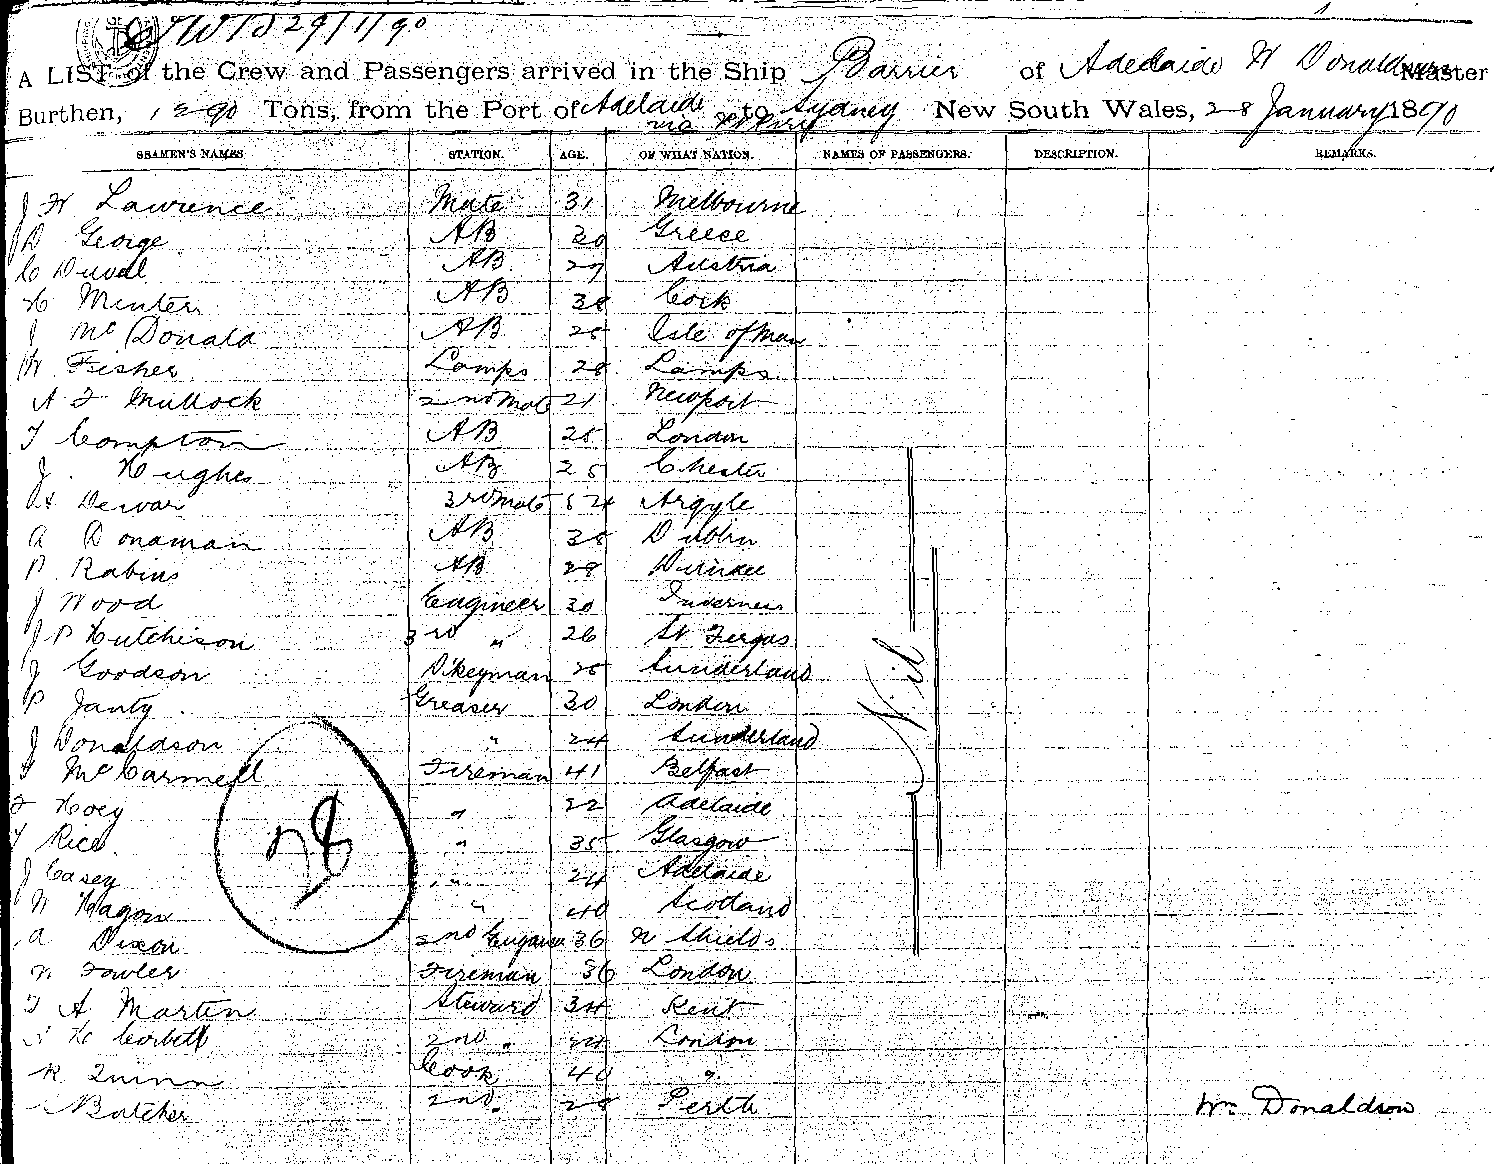 29/1/90
A LIST of the Crew and Passengers arrived in the Ship Barrier of Adelaide W Donaldson Master
Burthen, 1290 Tons, from the Port of Adelaide to Sydney New South Wales, 28 January 1890
via
SEAMEN'S NAMES STATION. AGE. OF WHAT NATION. NAMES OF PASSENGERS. DESCRIPTION. REMARKS.
J W Lawrence Mate 31 Melbourne
D George AB 30 Greece
C Duval AB 27 Austria
H Minter AB 38 Cork
J McDonald AB 25 Isle of Man
W Fisher Lamps 28 Lamps
A F Mullock 2nd Mate 21 Newport
T Compton AB 25 London
J Hughes AB 25 Chester
Dewar 3rd Mate 54 Argyle
A Donaman AB 35 Dublin
P Rabins AB 29 Dundee
J Wood Engineer 30 Inverness
J P Hutchison 3rd " 26 St Fergas
J Goodson Dkeyman 25 Sunderland
P Janty Greaser 30 London
J Donaldson " 24 Sunderland
McCarmell Fireman 41 Belfast
F Hoey " 22 Adelaide
T Rice " 35 Glasgow
J Casey " 24 Adelaide
W Hagon " 40 Scotland
A Dixon 2nd Engineer 36 N Shields
W Fowler Fireman 36 London
T A Marten Steward 34 Kent
H Corbett 2nd " 24 London
R Quinn Cook 40 "
Butcher 2nd " 28 Perth
Nil
28
Wm Donaldson